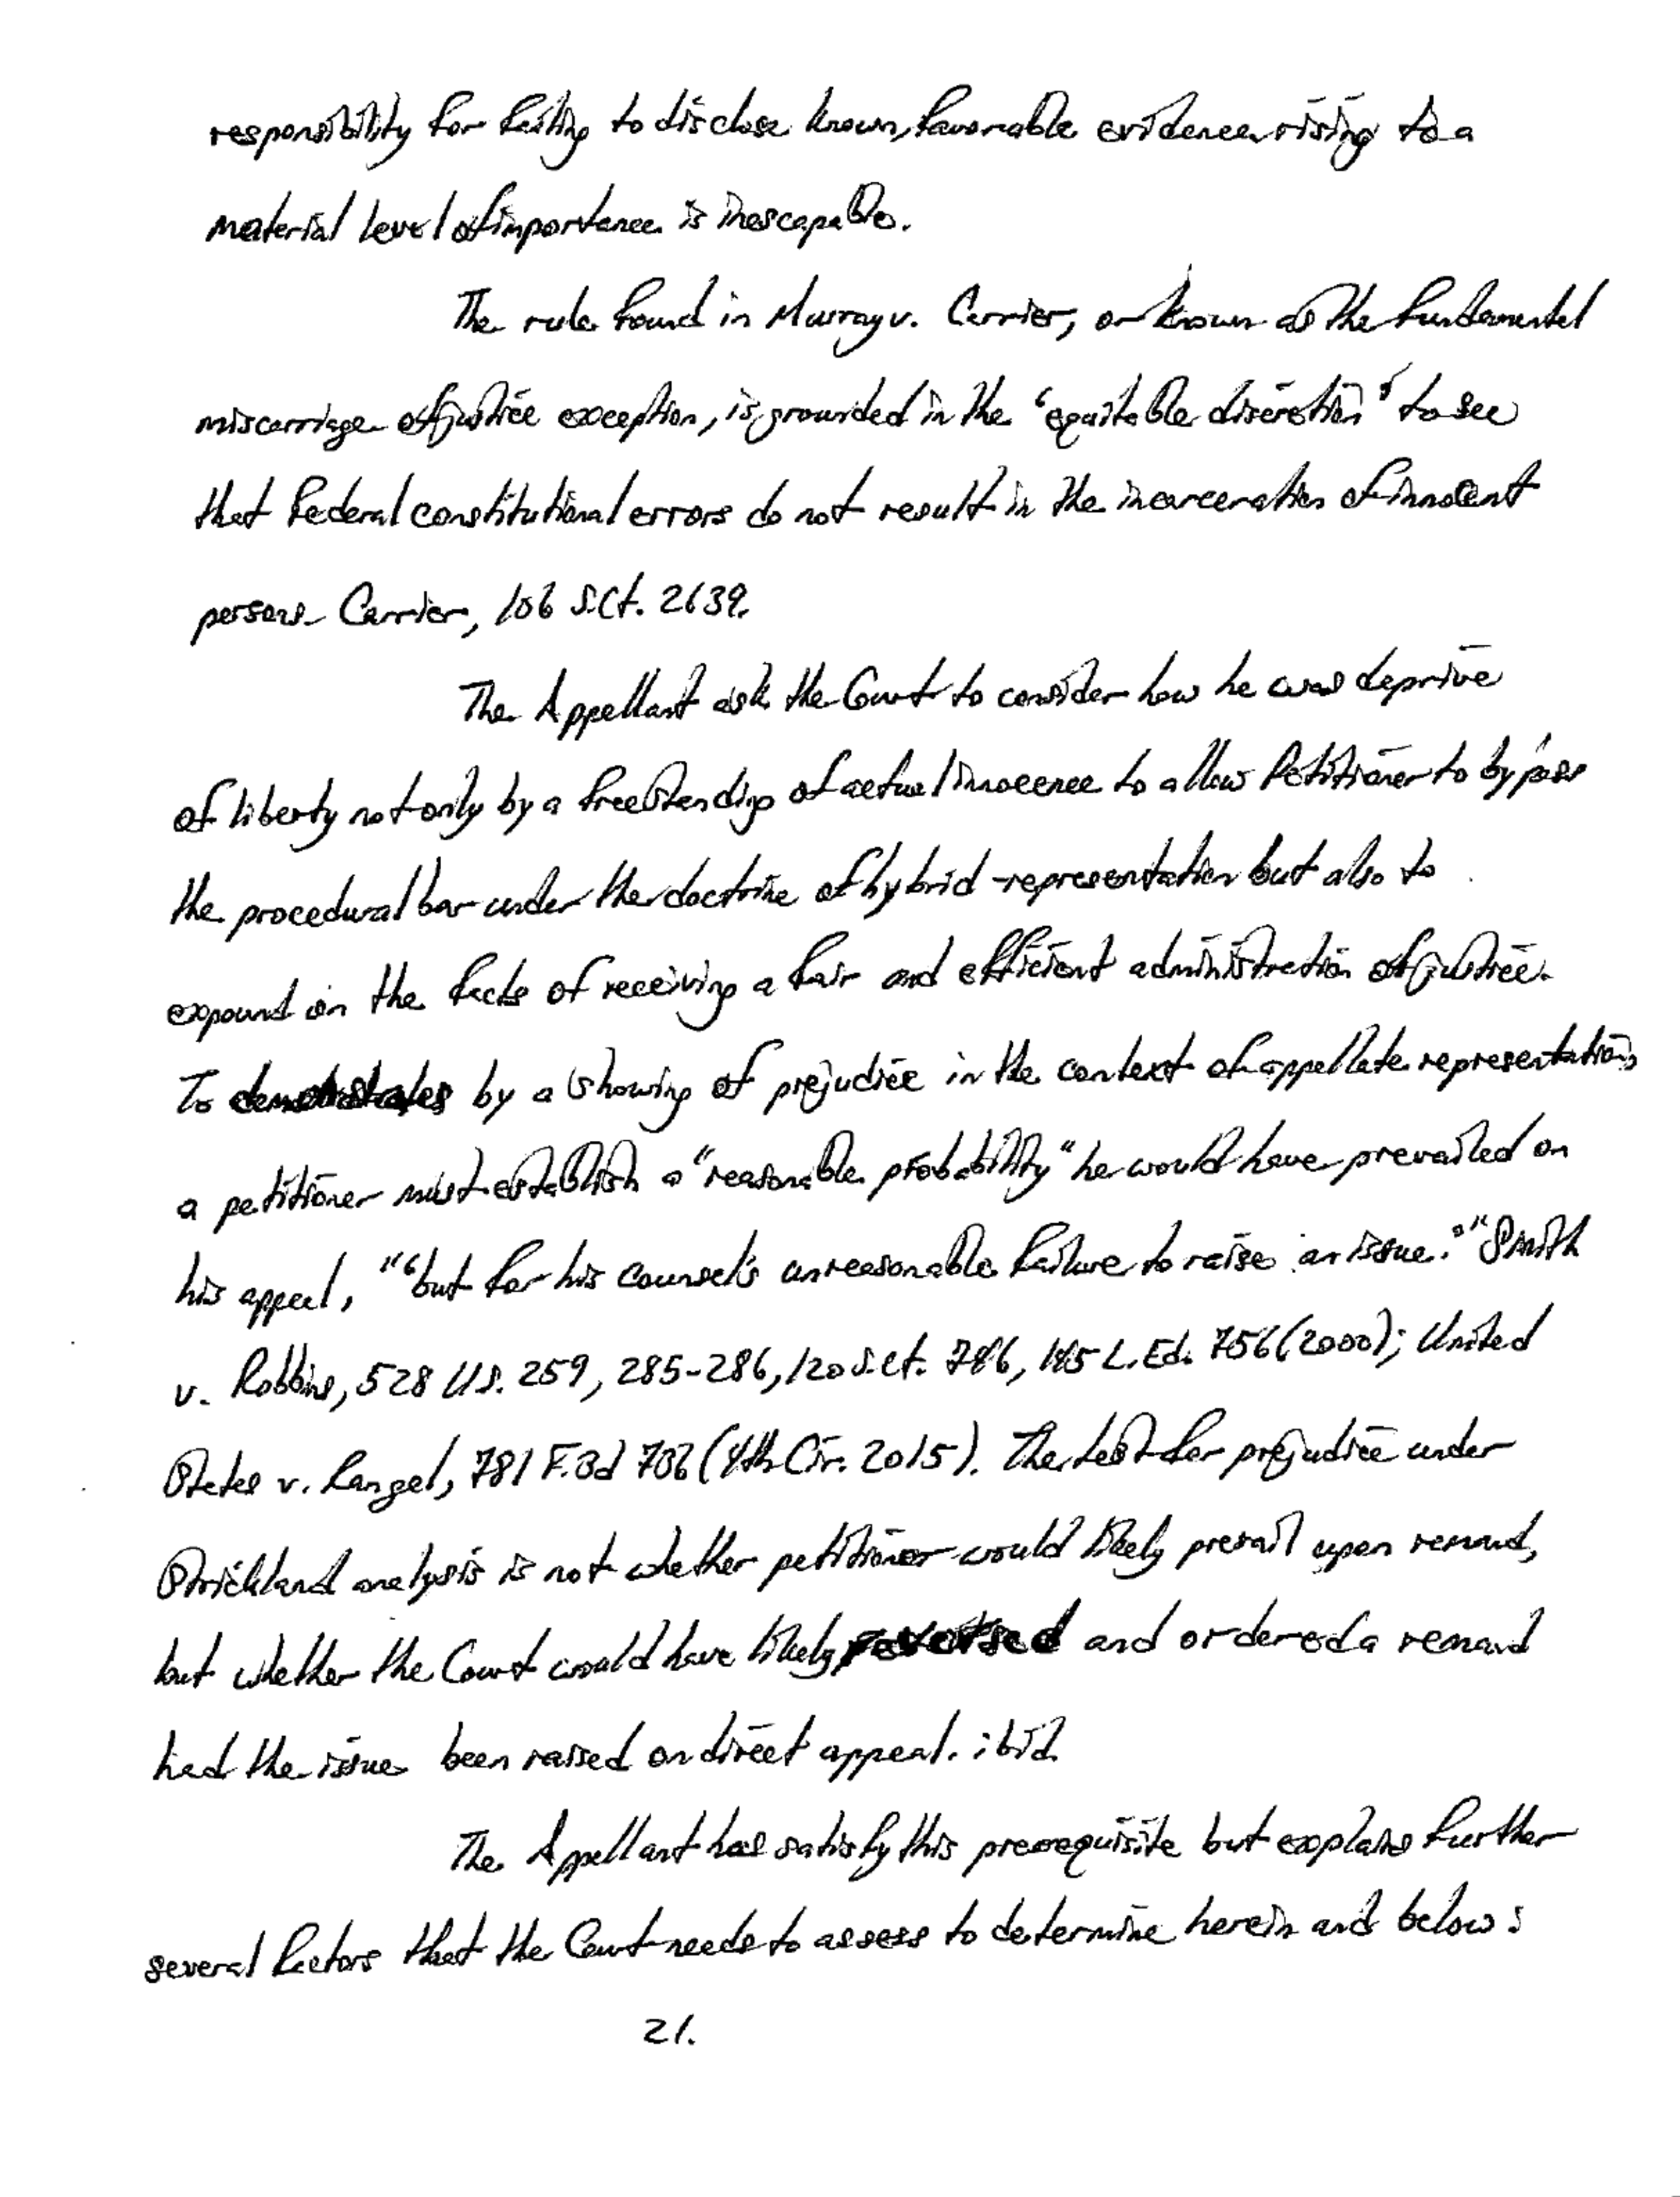 responsibility for failing to disclose known, favorable evidence rising to a
material level of importance is inescapable.
The rule found in Murray v. Carrier, or known as the fundamental
miscarriage of justice exception, is grounded in the "equitable discretion" to see
that federal constitutional errors do not result in the incarceration of innocent
persons. Carrier, 106 S.Ct. 2639.
The Appellant ask the Court to consider how he was deprive
of liberty not only by a freestanding of actual innocence to allow Petitioner to bypass
the procedural bar under the doctrine of hybrid-representation but also to
expound on the facts of receiving a fair and efficient administration of justice.
To demonstrates by a showing of prejudice in the context of appellate representation,
a petitioner must establish a "reasonable probability" he would have prevailed on
his appeal, "'but for his counsel's unreasonable failure to raise an issue.'" Smith
v. Robbins, 528 U.S. 259, 285-286, 120 S.Ct. 746, 145 L.Ed. 756 (2000); United
States v. Rangel, 781 F.3d 736 (4th Cir. 2015). The test for prejudice under
Strickland analysis is not whether petitioner would likely prevail upon remand,
but whether the Court would have likely reversed and ordered a remand
had the issue been raised on direct appeal. ibid.
The Appellant has satisfy this prerequisite but explains further
several factors that the Court needs to assess to determine herein and below:
21.